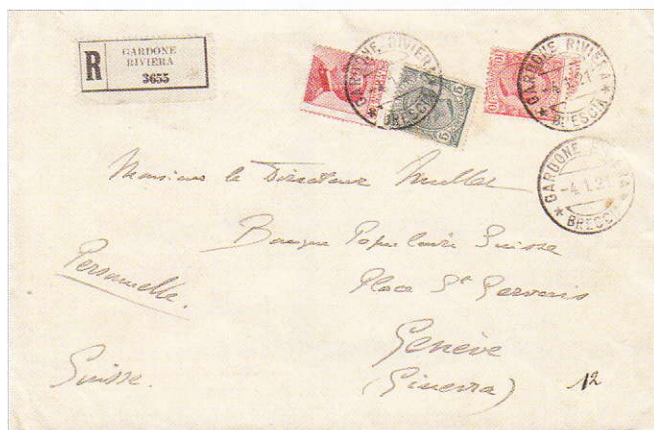 R
GARDONE
RIVIERA
3655
GARDONE RIVIERA
BRESCIA
5
5
GARDONE RIVIERA
BRESCIA
10
10
GARDONE RIVIERA
-4.1.21
BRESCIA
Monsieur le Directeur Muller
Banque Populaire Suisse
Place St Gervais
Personnelle.
Genève
Suisse.
(Ginevra)
12